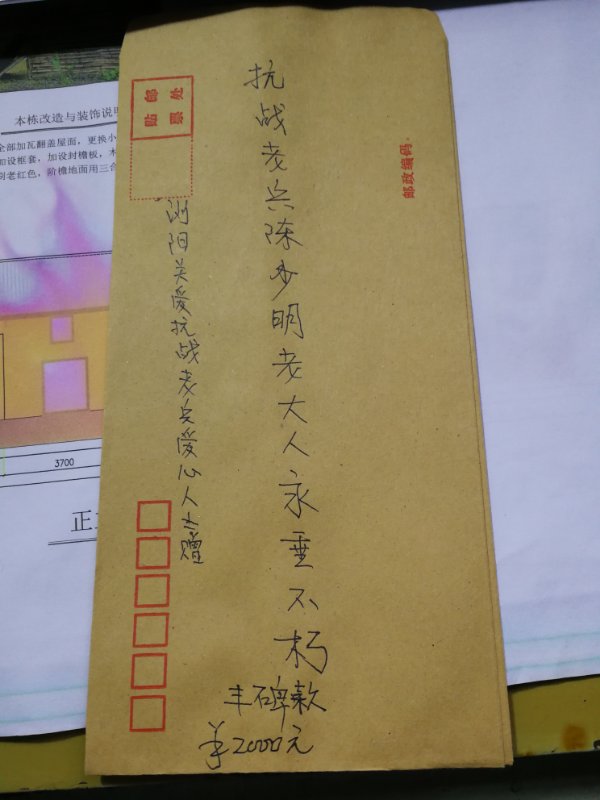 抗战老兵陈少明老大人永垂不朽
丰碑款
¥2000元
浏阳关爱抗战老兵爱心人士赠
贴邮
票处
邮政编码
本栋改造与装饰说明
全部加瓦翻盖屋面，更换小
加设框套，加设封檐板，木
刷老红色，阶檐地面用三合
3700
正